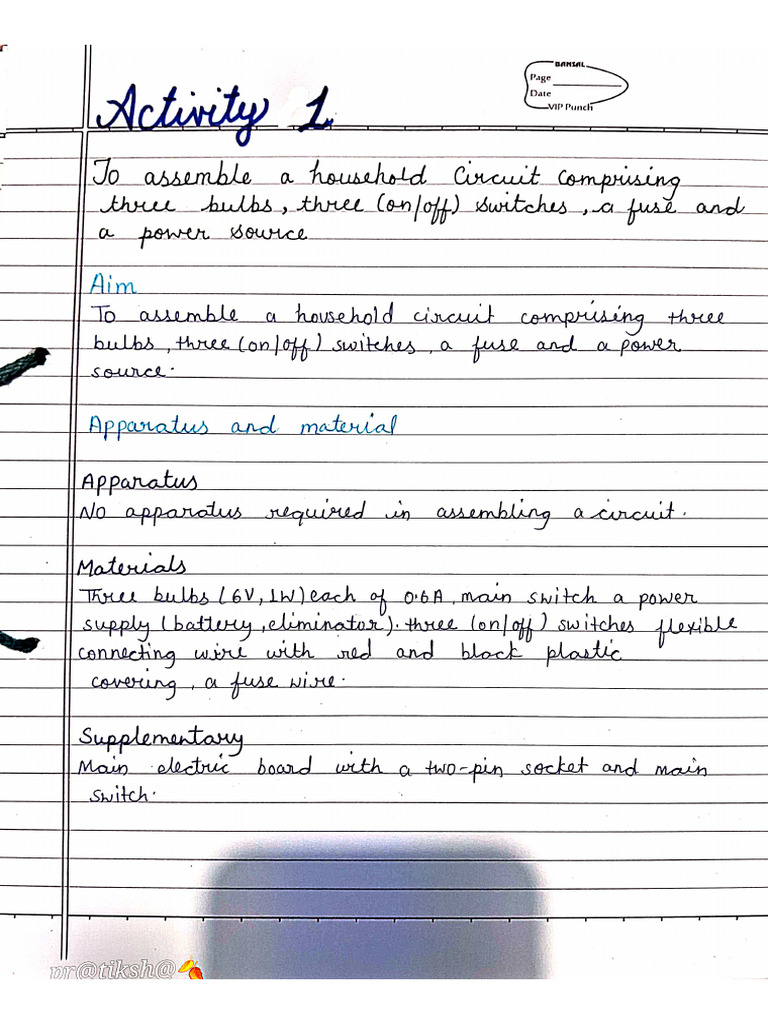 BANSAL
Page
Date
VIP Punch
Activity 1
To assemble a household Circuit comprising
three bulbs, three (on/off) switches, a fuse and
a power source
Aim
To assemble a household circuit comprising three
bulbs, three (on/off) switches, a fuse and a power
source.
Apparatus and material
Apparatus
No apparatus required in assembling a circuit.
Materials
Three bulbs (6V, 1W) each of 0.6A, main switch a power
supply (battery, eliminator). three (on/off) switches flexible
connecting wire with red and black plastic
covering, a fuse wire.
Supplementary
Main electric board with a two-pin socket and main
switch.
pr@tiksh@🥭